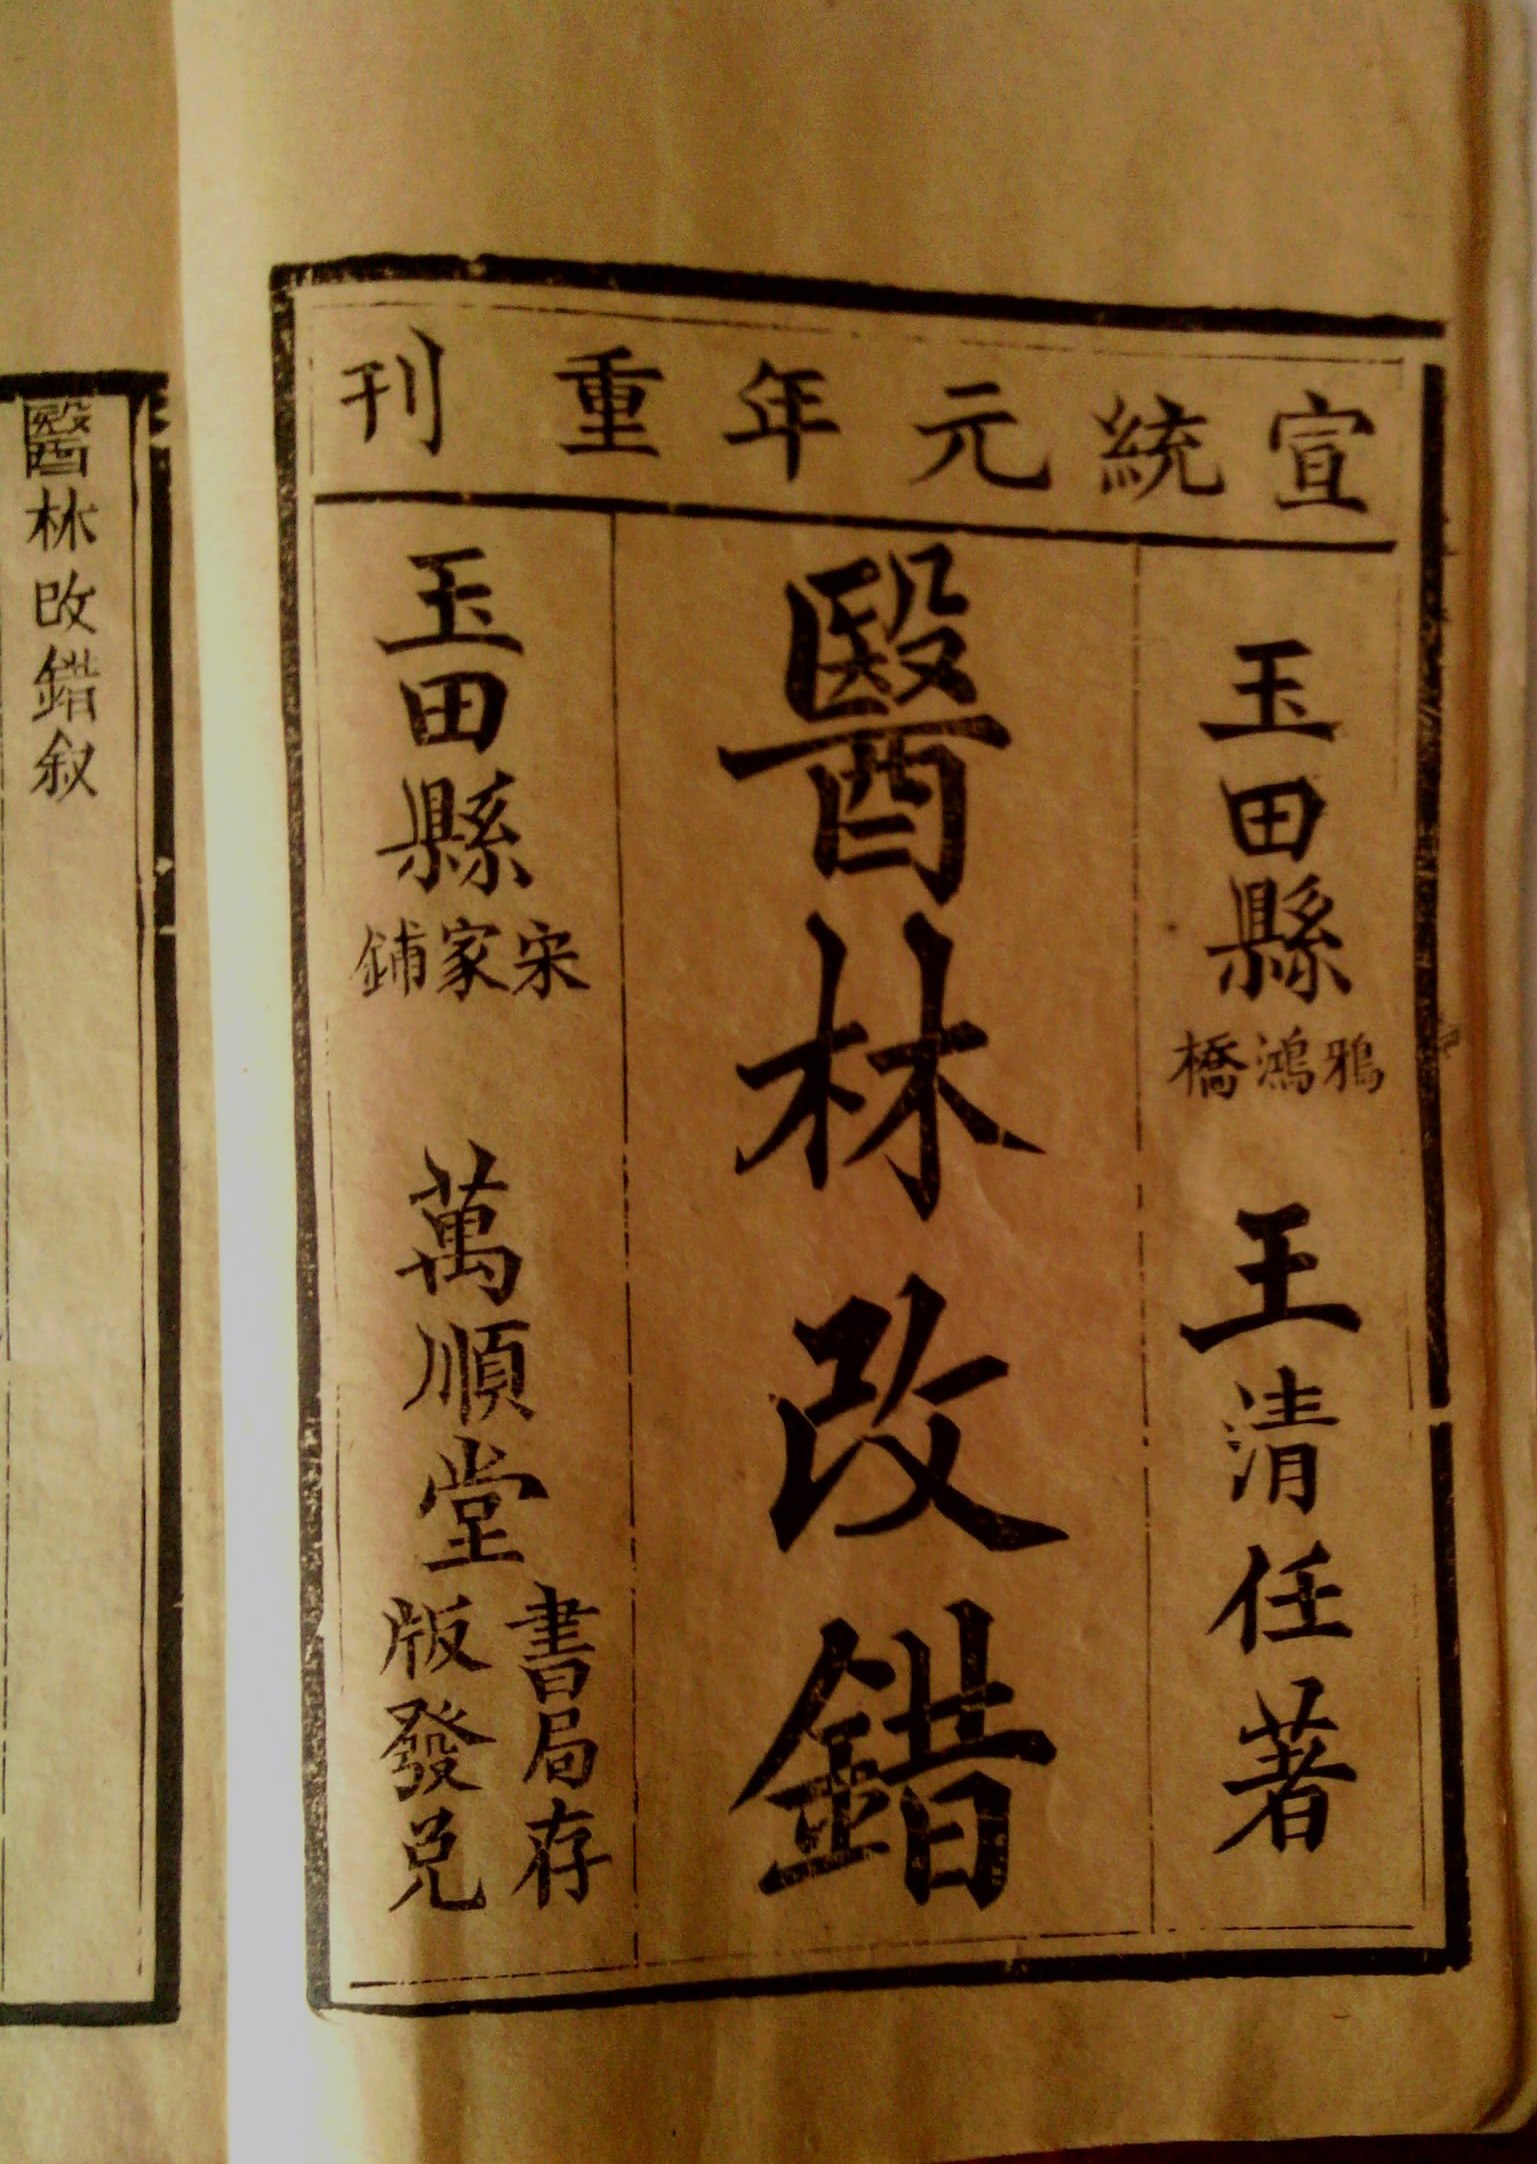 宣統元年重刊
玉田縣鴉鴻橋 王清任著
醫林改錯
玉田縣宋家鋪 萬順堂書局存版發兌
醫林改錯叙